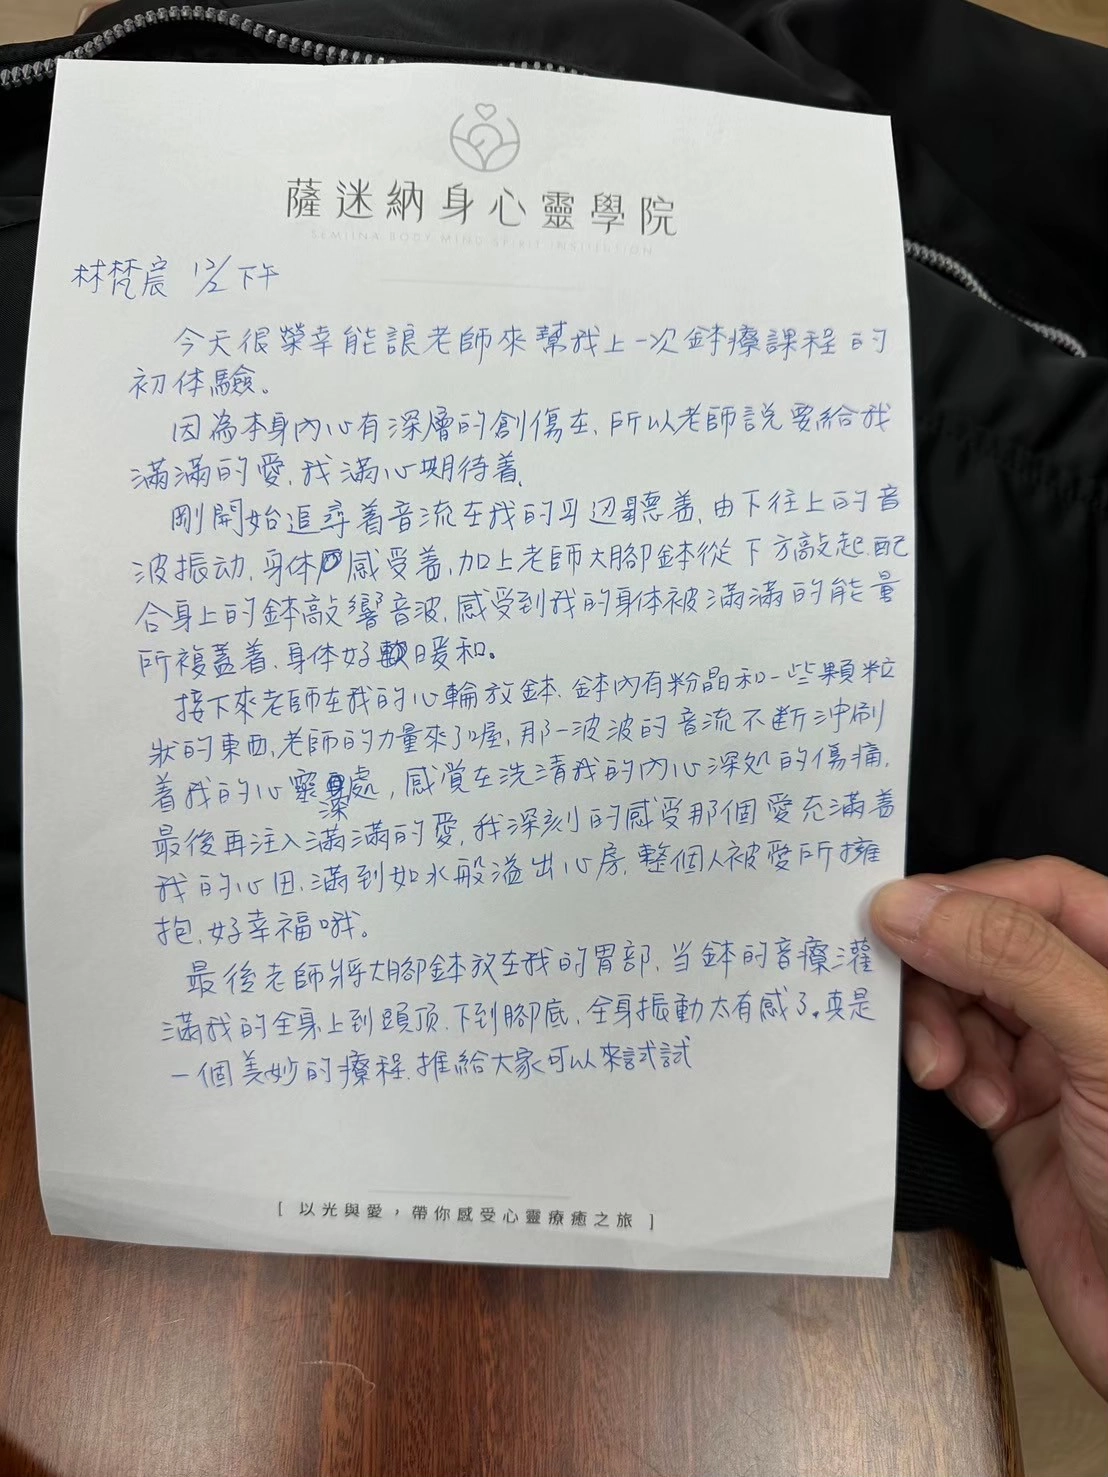 薩迷納身心靈學院
SEMIINA BODY MIND SPIRIT INSTITUTION
林梵宸 12/2 下午
今天很榮幸能讓老師來幫我上一次缽療課程的
初体驗。
因為本身內心有深層的創傷在、所以老師說要給我
滿滿的愛、我滿心期待着、
剛開始追尋着音流在我的耳边聽着、由下往上的音
波振动、身体感受着、加上老師大腳缽從下方敲起、配
合身上的缽敲響音波、感受到我的身体被滿滿的能量
所複蓋着、身体好軟暖和。
接下來老師在我的心輪放缽、缽內有粉晶和一些顆粒
狀的東西、老師的力量來了喔、那一波波的音流不斷沖刷
着我的心靈深處，感覚在洗清我的內心深処的傷痛、
最後再注入滿滿的愛、我深刻的感受那個愛充滿着
我的心田、滿到如水般溢出心房、整個人被愛所擁
抱、好幸福哦。
最後老師將大腳缽放在我的胃部、当缽的音療灌
滿我的全身上到頭顶、下到腳底、全身振動太有感了。真是
一個美妙的療程、推給大家可以來試試
[ 以光與愛，帶你感受心靈療癒之旅 ]